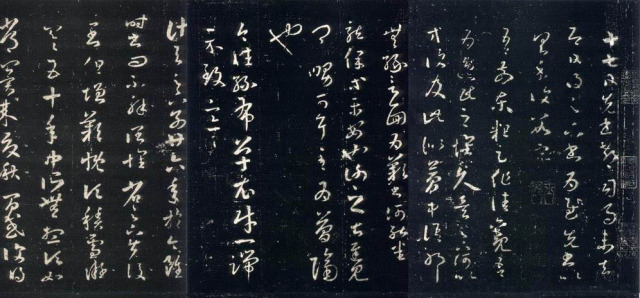 十七日先書郗司馬未去
即日得足下書為慰先書以
具示復數字
吾前東粗足作佳觀吾
為逸民之懷久矣足下何以
方復及此似夢中語耶
無緣言面為歎書何能悉
龍保等平安也謝之甚遲見
卿舅可耳至為簡隔
也
今往絲布單衣財一端
示致意
計與足下別廿六年於今雖
時書問不解闊懷省足下先後
二書但增歎慨頃積雪凝
寒五十年中所無想頃如
常冀來夏秋間或復得足